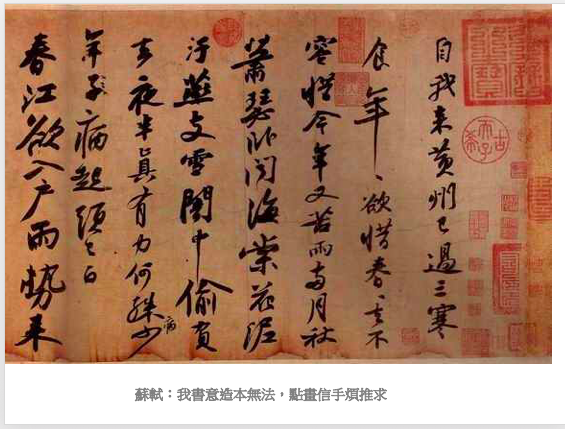 古希天子
自我來黃州已過三寒
食年〻欲惜春〻去不
容惜今年又苦雨兩月秋
蕭瑟臥聞海棠花泥
汙燕支雪闇中偷負
去夜半真有力何殊少
病
年子病起頭已白
春江欲入戶雨勢來
蘇軾：我書意造本無法，點畫信手煩推求